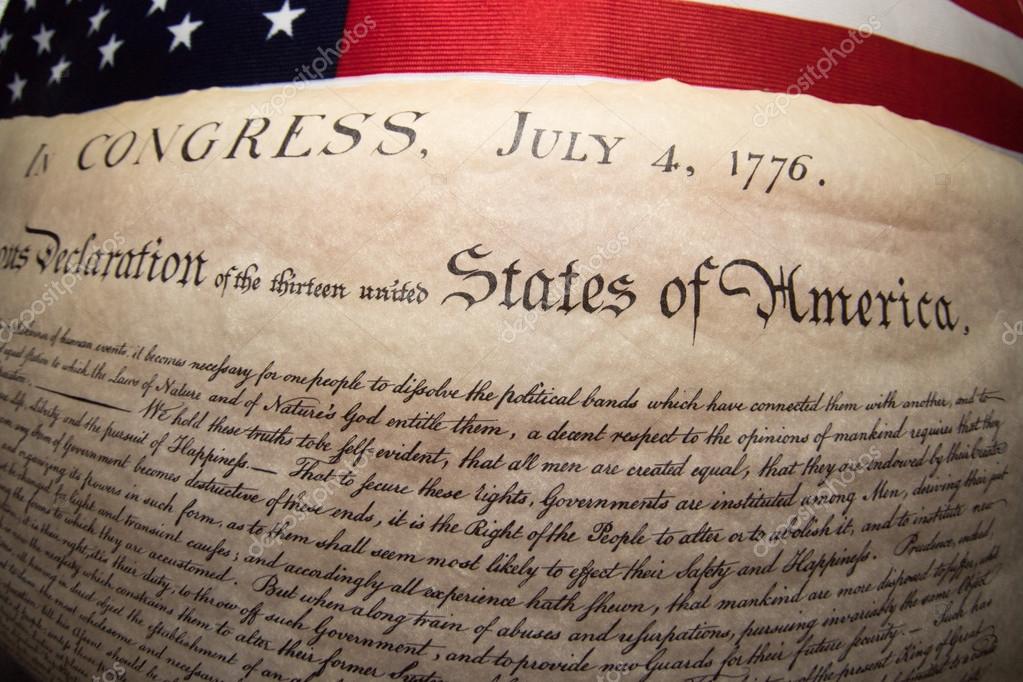 In CONGRESS, July 4, 1776.
Declaration of the thirteen united States of America,
of human events, it becomes necessary for one people to dissolve the political bands which have connected them with another, and to
to which the Laws of Nature and of Nature's God entitle them, a decent respect to the opinions of mankind requires that they
We hold these truths to be self-evident, that all men are created equal, that they are endowed by their
Liberty and the pursuit of Happiness.— That to secure these rights, Governments are instituted among Men, deriving their just
any Form of Government becomes destructive of these ends, it is the Right of the People to alter or to abolish it, and to institute new
and organizing its powers in such form, as to them shall seem most likely to effect their Safety and Happiness. Prudence, indeed
be changed for light and transient causes; and accordingly all experience hath shewn, that mankind are more disposed to suffer, while
the forms to which they are accustomed. But when a long train of abuses and usurpations, pursuing invariably the same Object
it is their right, it is their duty, to throw off such Government, and to provide new Guards for their future security.— Such has
the necessity which constrains them to alter their former of the present King of Great
the establishment of an
most wholesome and necessary
depositphotos